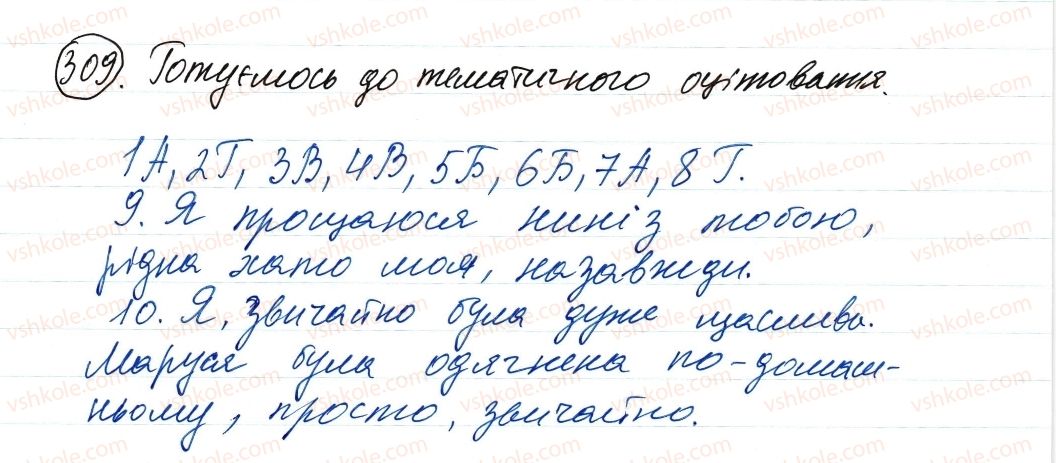 309. Готуємось до тематичного оцінювання.
1А, 2Г, 3В, 4В, 5Б, 6Б, 7А, 8Г.
9. Я прощаюся нині з тобою,
рідна хато моя, назавжди.
10. Я, звичайно була дуже щаслива.
Маруся була одягнена по-домаш-
ньому, просто, звичайно.
vshkole.com